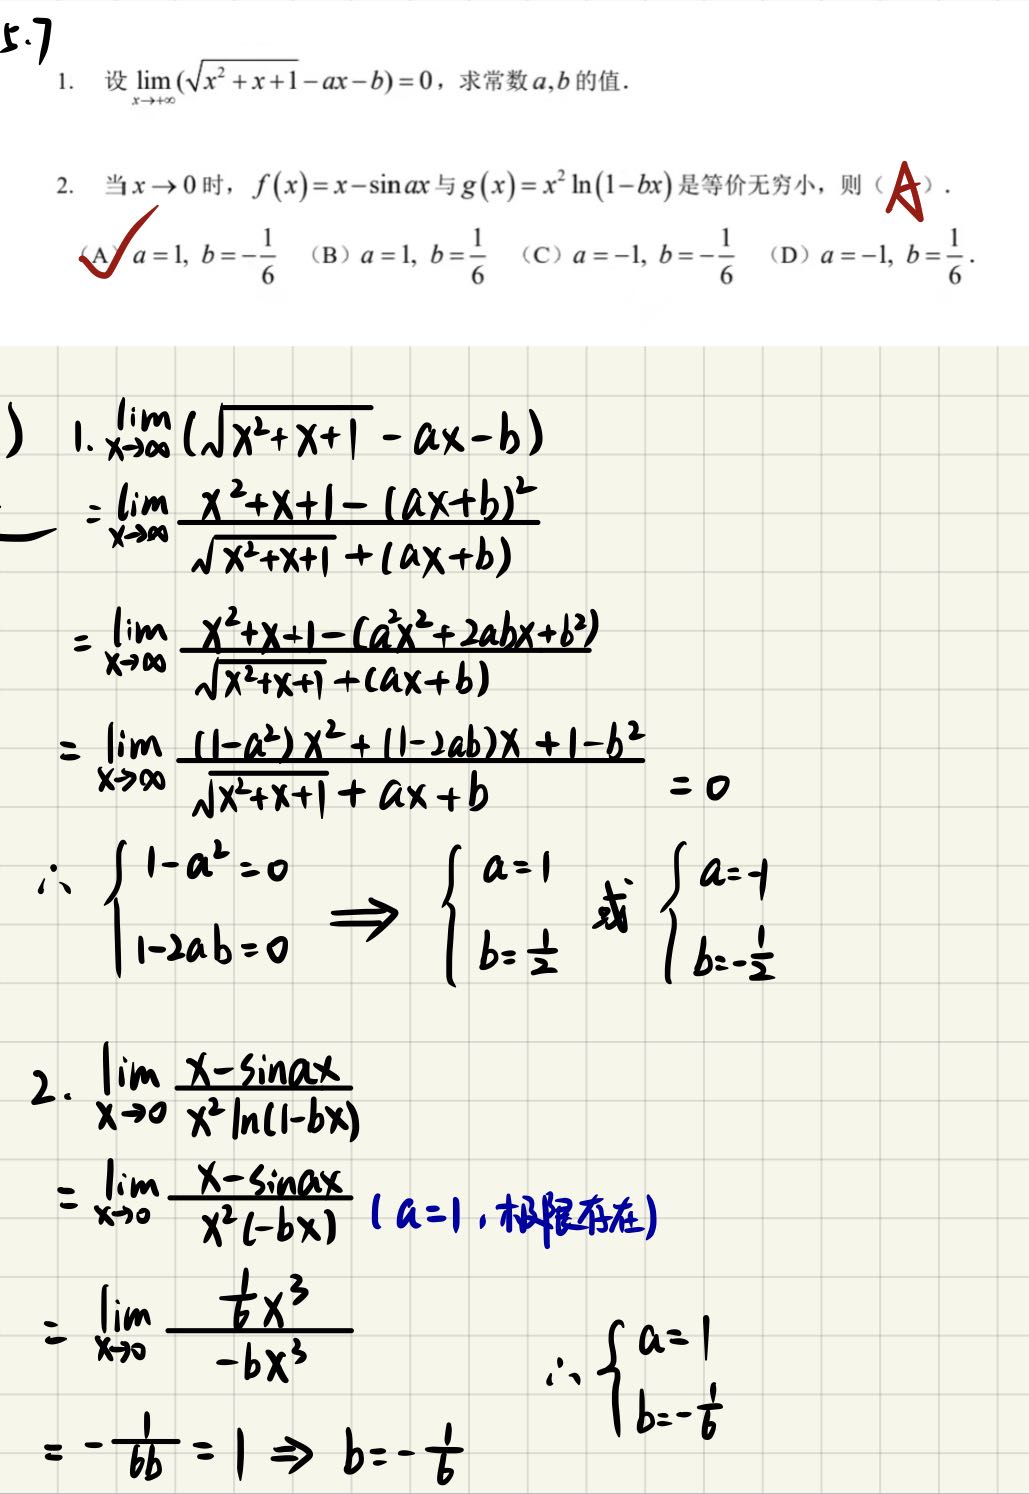 5.7
1. 设 lim(x→+∞) (√(x²+x+1) − ax − b) = 0，求常数 a,b 的值.
2. 当 x → 0 时，f(x) = x − sin ax 与 g(x) = x² ln(1−bx) 是等价无穷小，则（A）.
(A) a = 1, b = −1/6 （B）a = 1, b = 1/6 （C）a = −1, b = −1/6 （D）a = −1, b = 1/6.
) 1. lim(x→∞) (√(x²+x+1) − ax − b)
= lim(x→∞) (x²+x+1 − (ax+b)²) / (√(x²+x+1) + (ax+b))
= lim(x→∞) (x²+x+1 − (a²x²+2abx+b²)) / (√(x²+x+1) + (ax+b))
= lim(x→∞) ((1−a²)x² + (1−2ab)x + 1−b²) / (√(x²+x+1) + ax + b) = 0
∴ { 1−a² = 0, 1−2ab = 0 ⟹ { a = 1, b = 1/2 或 { a = −1, b = −1/2
2. lim(x→0) (x − sinax) / (x² ln(1−bx))
= lim(x→0) (x − sinax) / (x²(−bx)) (a=1，极限存在)
= lim(x→0) (1/6 x³) / (−bx³)
∴ { a = 1, b = −1/6
= −1/(6b) = 1 ⇒ b = −1/6